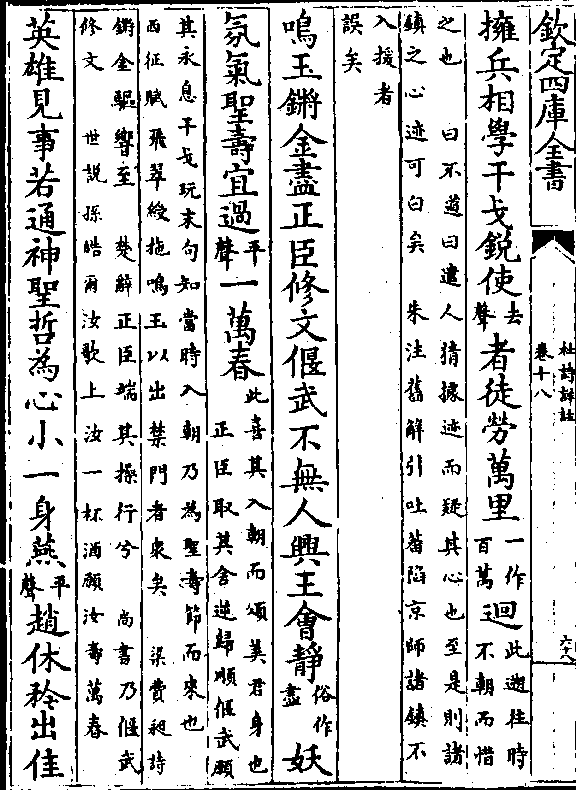 欽定四庫全書
杜詩詳註
卷十八
六十八
擁兵相學干戈銳使去聲者徒勞萬里一作百萬迴此遡往時不朝而惜
之也　曰不道曰遣人猜據迹而疑其心也至是則諸
鎮之心迹可白矣　朱注舊解引吐蕃陷京師諸鎮不
入援者
誤矣
鳴玉鏘金盡正臣修文偃武不無人興王會靜俗作盡妖
氛氣聖壽宜過平聲一萬春此喜其入朝而頌美君身也正臣取其舍逆歸順偃武願
其永息干戈玩末句知當時入朝乃為聖壽節而來也
西征賦飛翠緌拖鳴玉以出禁門者衆矣　梁費昶詩
鏘金驅響至　楚辭正臣端其操行兮　尚書乃偃武
修文　世說孫皓爾汝歌上汝一杯酒願汝壽萬春
英雄見事若通神聖哲為心小一身燕平聲趙休矜出佳